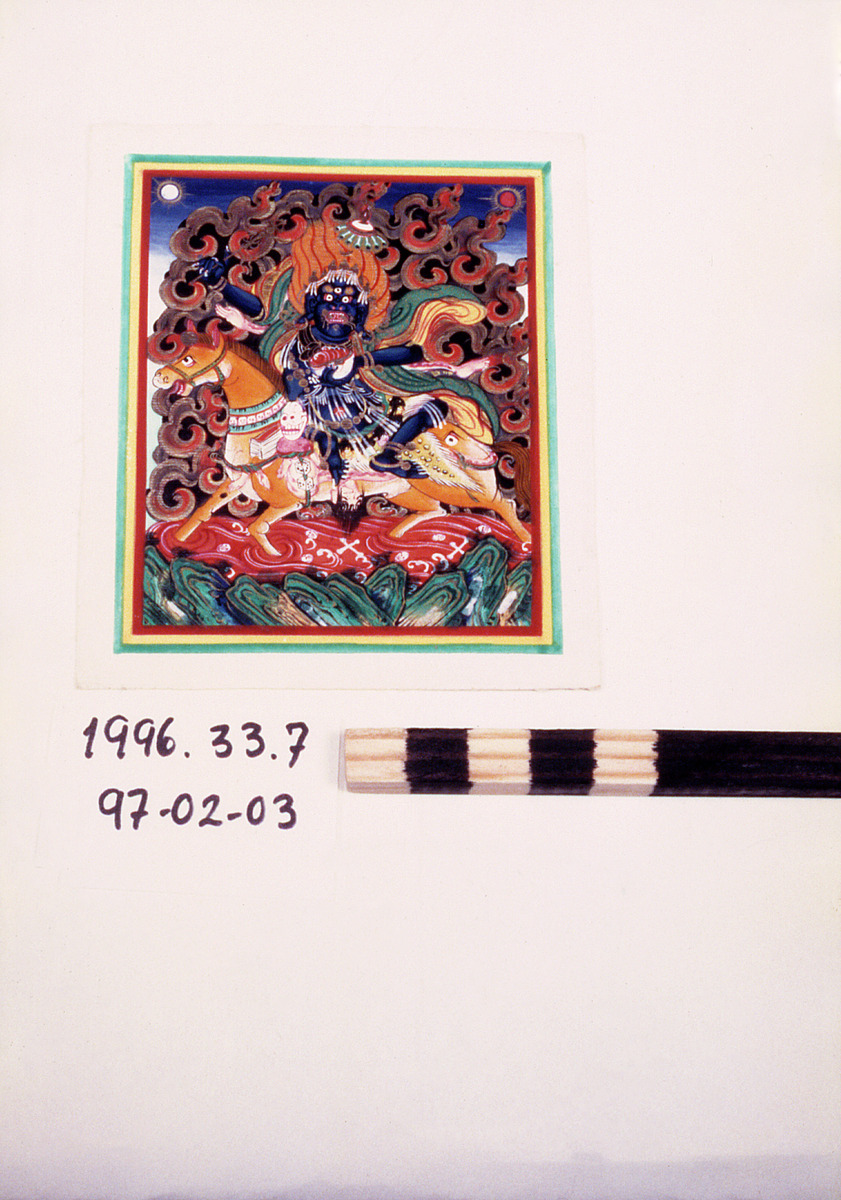 1996.33.7
97-02-03